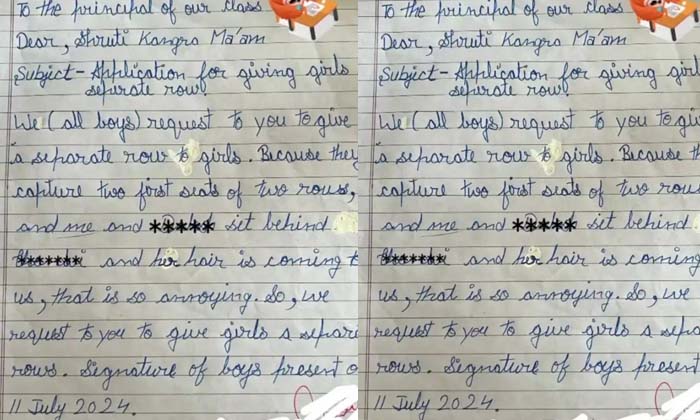 To the principal of our class
Dear, Shruti Kangra Ma'am
Subject - Application for giving girls
separate row
We (all boys) request to you to give
a separate row to girls. Because they
capture two first seats of two rows,
and me and ***** sit behind
****** and her hair is coming
us, that is so annoying. So, we
request to you to give girls a separa
rows. Signature of boys present o
11 July 2024.
To the principal of our class
Dear, Shruti Kangra Ma'am
Subject - Application for giving girl
separate row
We (all boys) request to you to giv
a separate row to girls. Because th
capture two first seats of two rows
and me and ***** sit behind
****** and her hair is coming
us, that is so annoying. So, we
request to you to give girls a sepa
rows. Signature of boys present
11 July 2024.